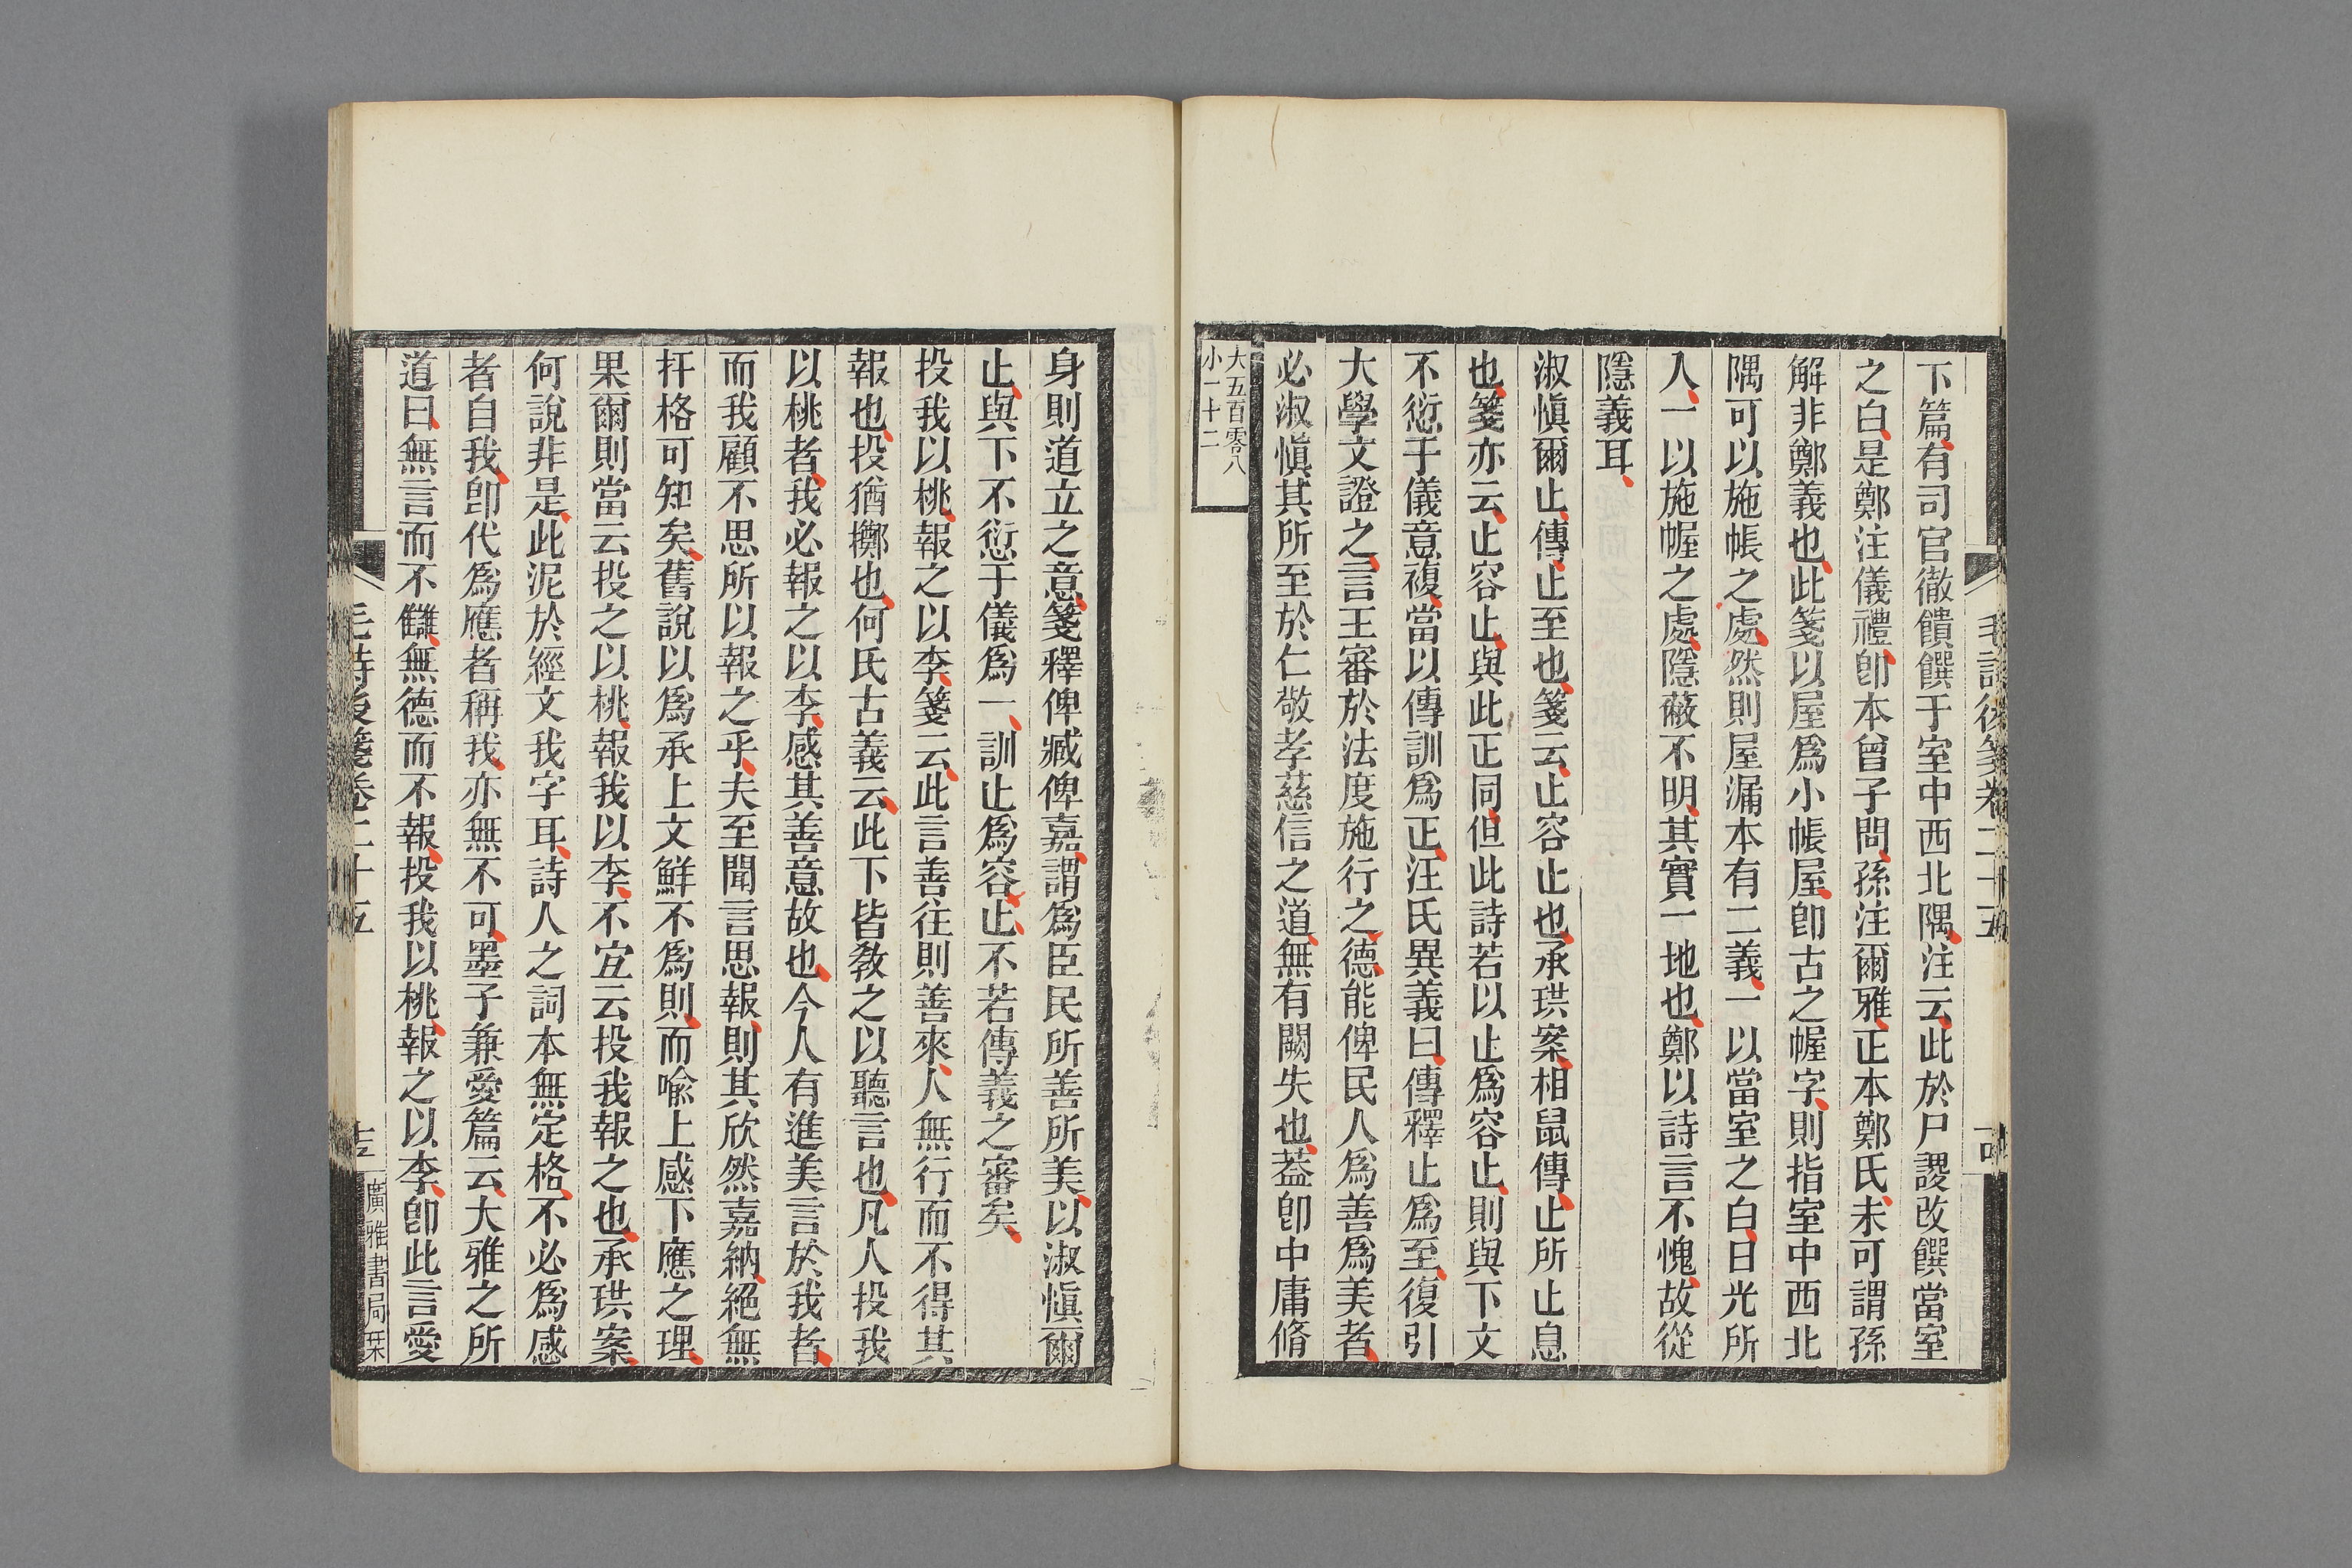 下篇有司官徹饋饌于室中西北隅注云此於尸謖改饌當室
之白是鄭注儀禮卽本曾子問孫注爾雅正本鄭氏未可謂孫
解非鄭義也此箋以屋爲小帳屋卽古之幄字則指室中西北
隅可以施帳之處然則屋漏本有二義一以當室之白日光所
入一以施幄之處隱蔽不明其實一地也鄭以詩言不愧故從
隱義耳
淑愼爾止傳止至也箋云止容止也承珙案相鼠傳止所止息
也箋亦云止容止與此正同但此詩若以止爲容止則與下文
不愆于儀意複當以傳訓爲正汪氏異義曰傳釋止爲至復引
大學文證之言王審於法度施行之德能俾民人爲善爲美者
必淑愼其所至於仁敬孝慈信之道無有闕失也蓋卽中庸脩
大五百零八
小一十二
身則道立之意箋釋俾臧俾嘉謂爲臣民所善所美以淑愼爾
止與下不愆于儀爲一訓止爲容止不若傳義之審矣
投我以桃報之以李箋云此言善往則善來人無行而不得其
報也投猶擲也何氏古義云此下皆敎之以聽言也凡人投我
以桃者我必報之以李感其善意故也今人有進美言於我者
而我顧不思所以報之乎夫至聞言思報則其欣然嘉納絕無
扞格可知矣舊說以爲承上文鮮不爲則而喩上感下應之理
果爾則當云投之以桃報我以李不宜云投我報之也承珙案
何說非是此泥於經文我字耳詩人之詞本無定格不必爲感
者自我卽代爲應者稱我亦無不可墨子兼愛篇云大雅之所
道曰無言而不讎無德而不報投我以桃報之以李卽此言愛
毛詩後箋卷二十五
廣雅書局栞